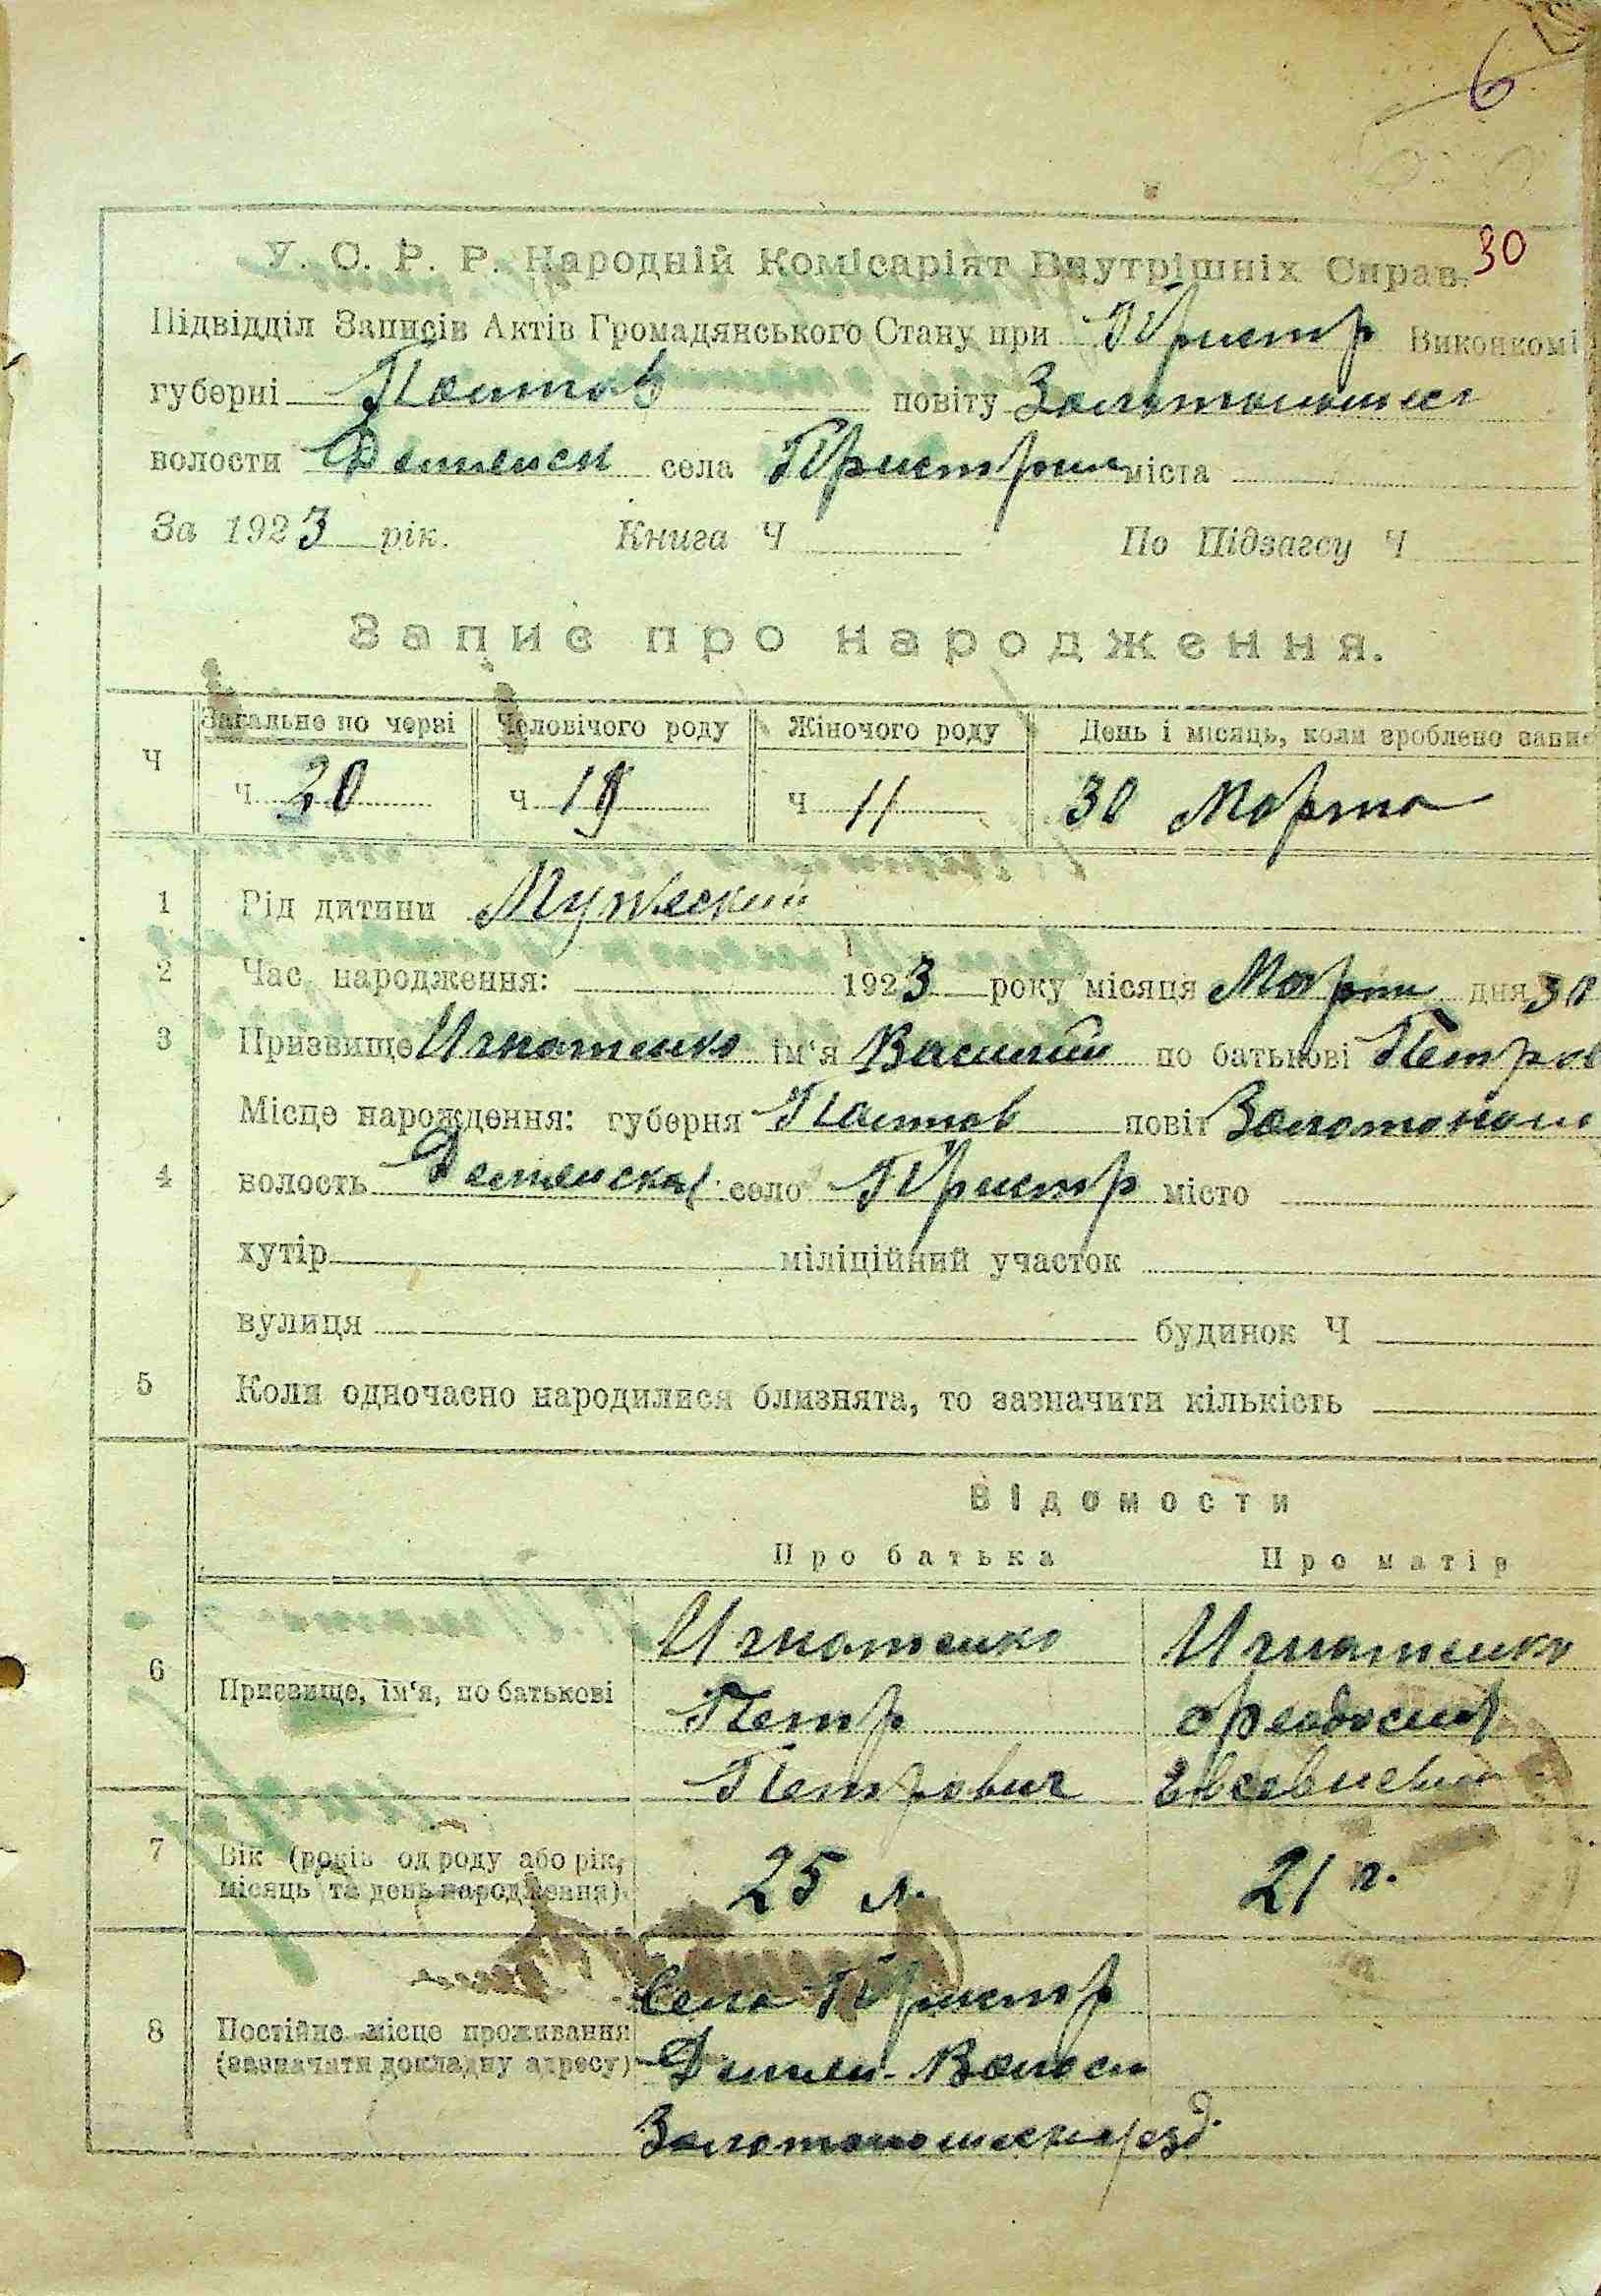 6
30
У. С. Р. Р. Народній Комісаріят Внутрішніх Справ.
Підвідділ Записів Актів Громадянського Стану при Пристр Виконкомі
губерні Полтав повіту Золотоношск
волости Демьенск села Пристром міста
За 1923 рік. Книга Ч По Підзагсу Ч
Запис про народження.
Ч Загальне по черзі Чоловічого роду Жіночого роду День і місяць, коли зроблено запис
ч 20 ч ч 11 30 Марта
1 Рід дитини Мужеский
2 Час народження: 1923 року місяця Марта дня 30
3 Призвище Игнатенко ім'я Василий по батькові Петров
Місце народження: губерня Полтав повіт Золотонош
4 волость село Пристр місто
хутір міліційний участок
вулиця будинок Ч
5 Коли одночасно народилися близнята, то зазначити кількість
Відомости
Про батька Про матір
Игнатенко Игнатенко
6 Призвище, ім'я, по батькові Петр Феодосия
Петрович
7 Вік (років од роду або рік, місяць та день народження) 25 л. 21 г.
Село Пристр
8 Постійне місце проживання
(зазначити докладну адресу) Волости